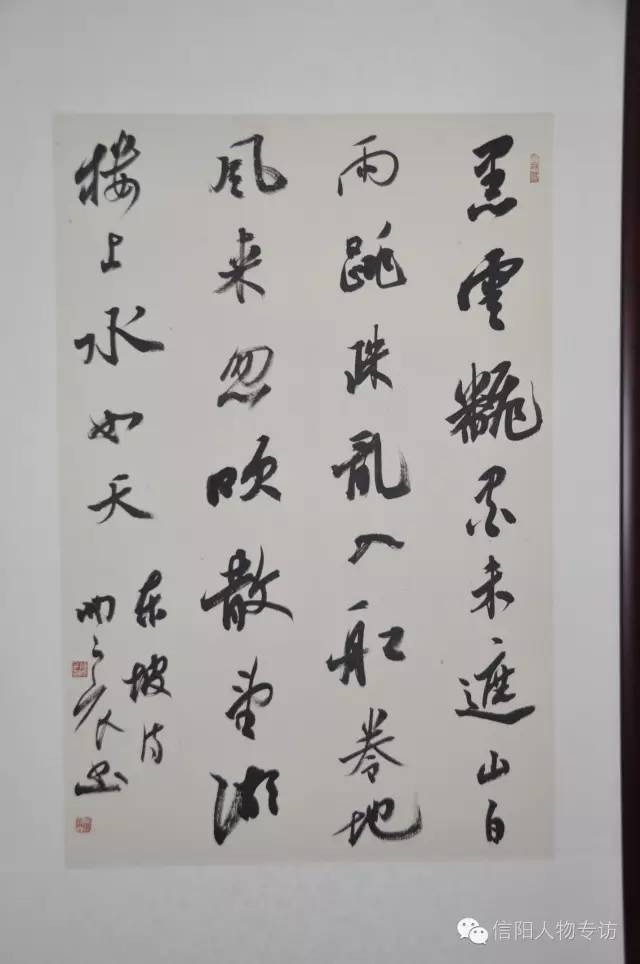 黑雲翻墨未遮山白
雨跳珠亂入船卷地
風来忽吹散望湖
樓上水如天
東坡诗
书
信阳人物专访